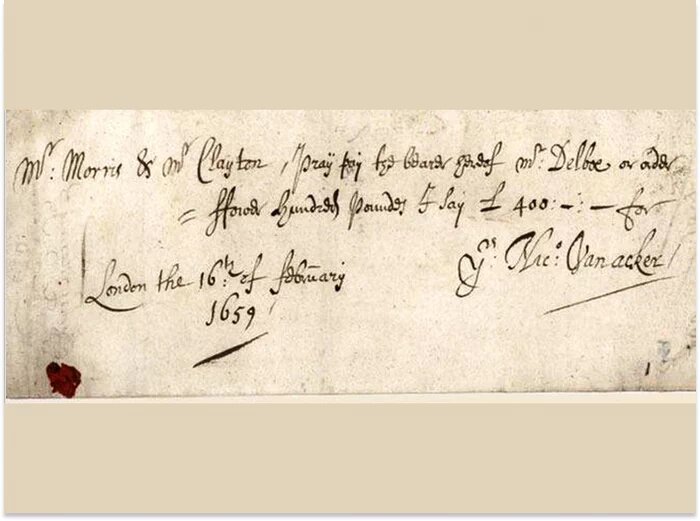 Mr: Morris & Mr Clayton, I pray pay the bearer hereof Mr: Delboe or order
= ffower hundred Poundes I say £ 400: —: — for
Yrs Nico Vanacker
London the 16th of february
1659
1